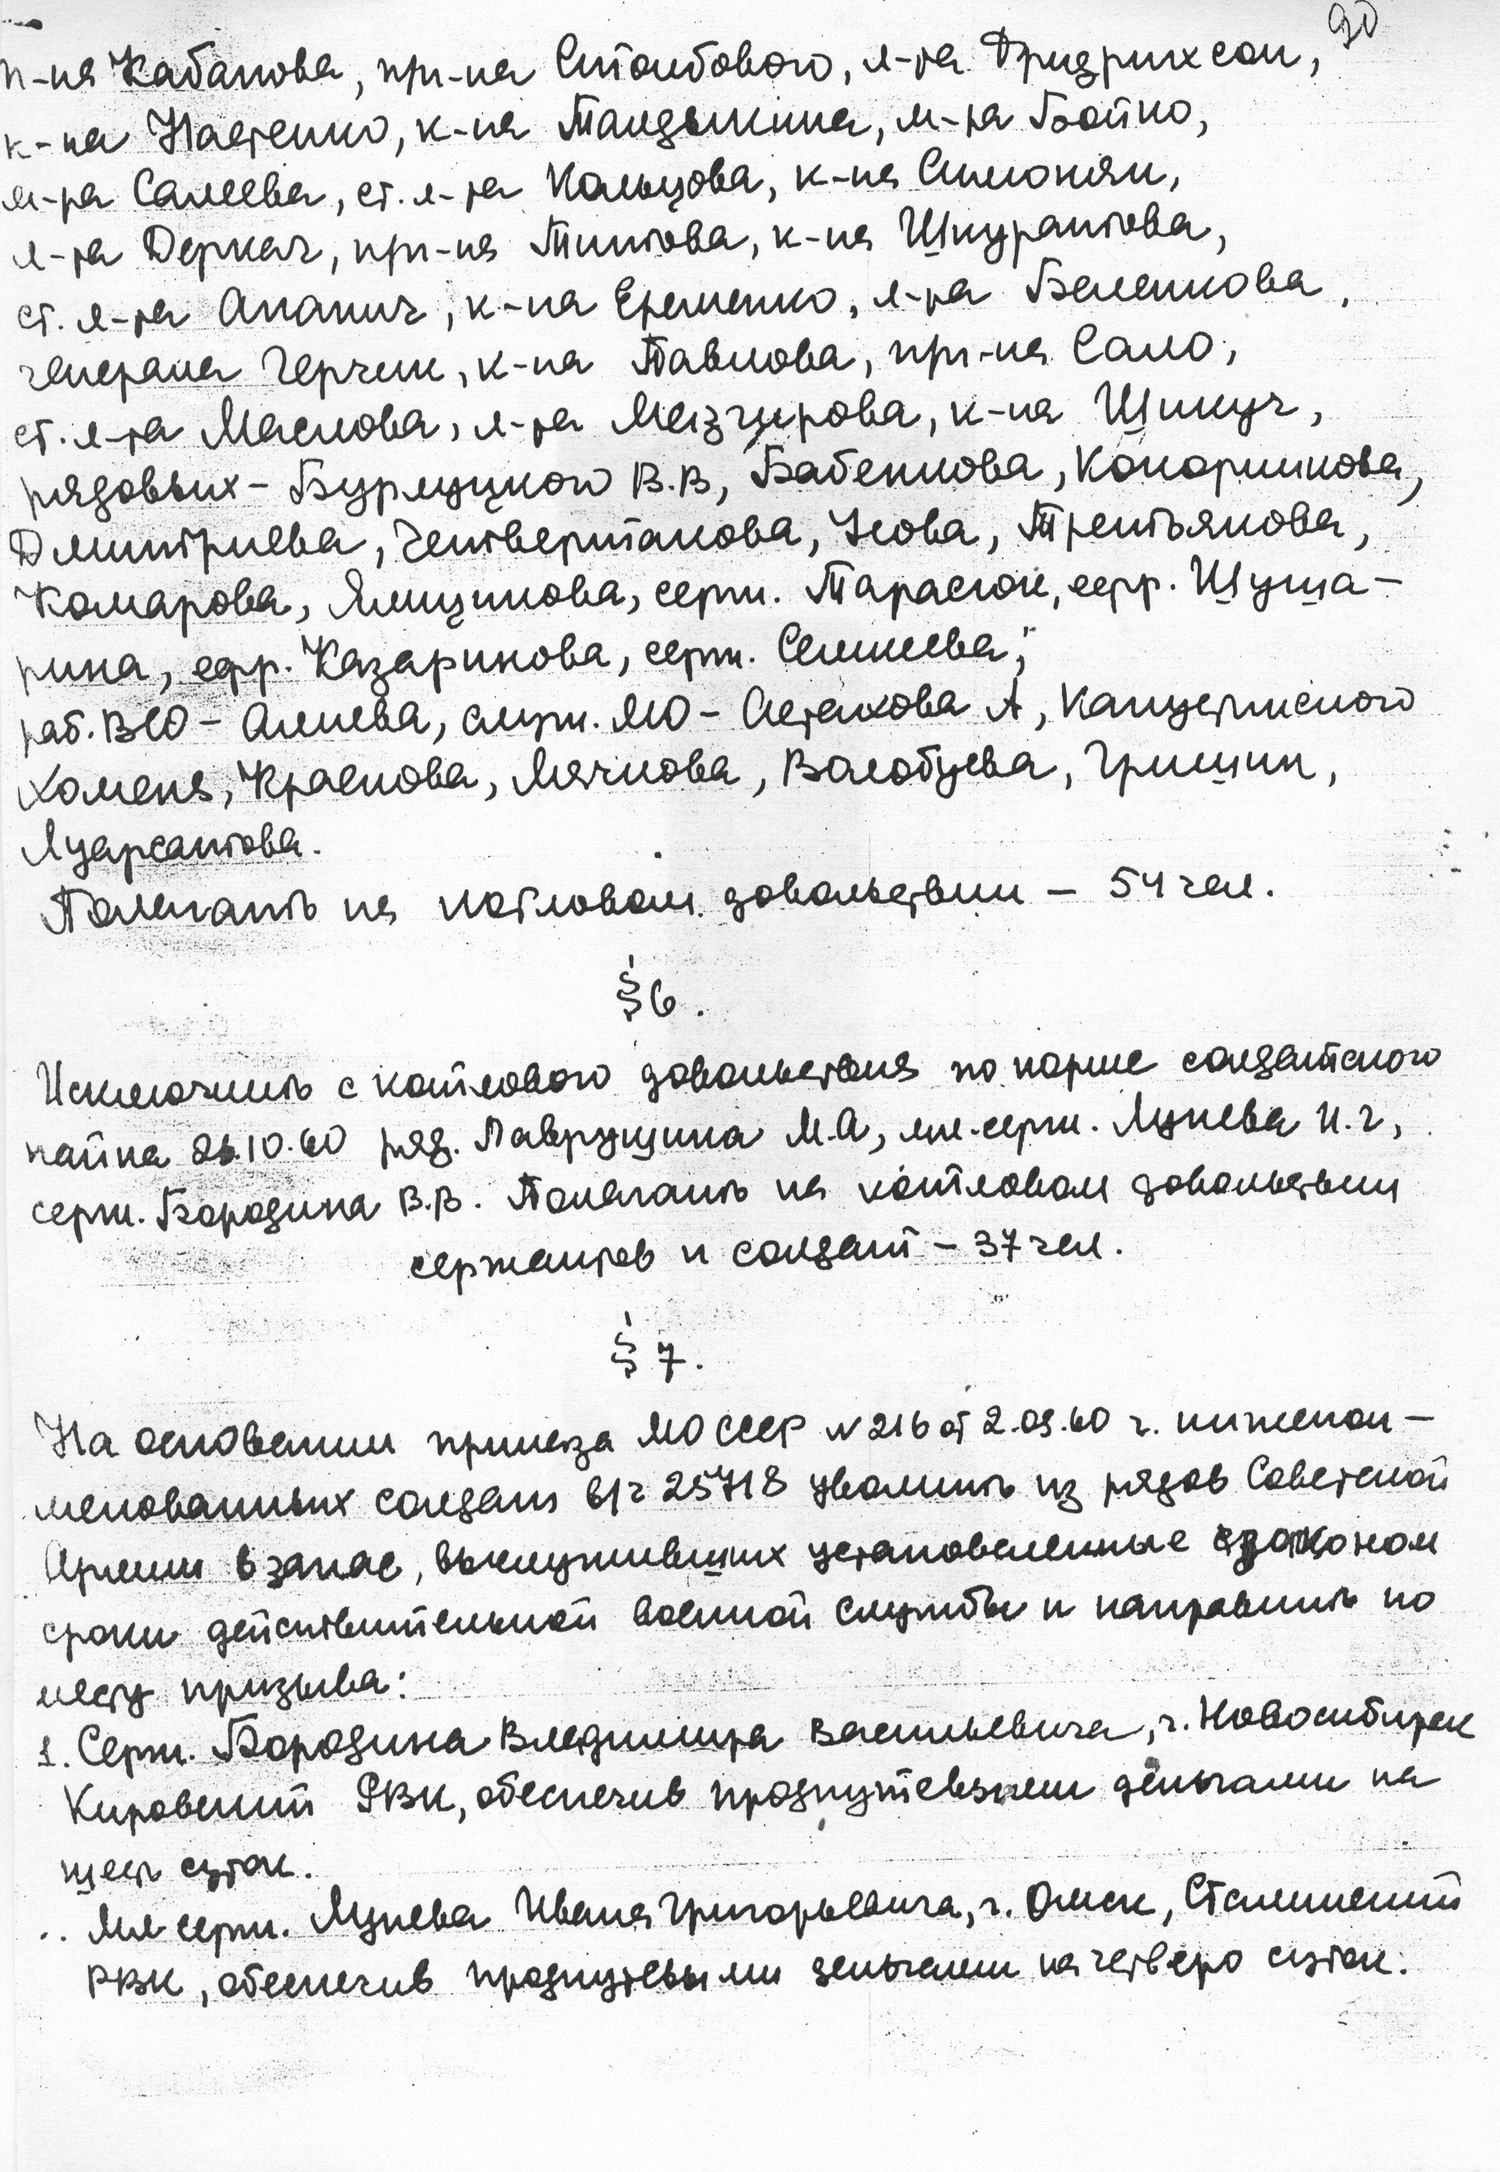 90
п-ка Кабанова, пп-ка Столбового, л-та Фридрихсон,
к-на Настенко, к-на Талдыкина, м-ра Бойко,
м-ра Салеева, ст. л-та Кольцова, к-на Симонян,
л-та Деркач, пп-ка Титова, к-на Шкуратова,
ст. л-та Апанич, к-на Еременко, л-та Беленкова,
генерала Герчик, к-на Павлова, пп-ка Сало,
ст. л-та Маслова, л-та Мезгирова, к-на Шикуч,
рядовых - Бурлуцкого В.В, Бабенкова, Конорникова,
Дмитриева, Четвертакова, Усова, Третьякова,
Комарова, Ямщикова, серж. Тарасюк, ефр. Шуша-
рина, ефр. Казаринова, серж. Семкеева;
раб. ВСО - Алиева, служ. МО - Астахова А,
Хоменя, Краснова, Мячкова, Волобуева, Гришин,
Луарсаптова.
Полагать на котловом довольствии - 54 чел.
§ 6.
Исключить с котлового довольствия по норме солдатского
пайка 26.10.60 ряд. Лаврущина М.А, мл.серж. Лунева И.Г,
серж. Бородина В.В. Полагать на котловом довольствии
сержантов и солдат - 37 чел.
§ 7.
На основании приказа МО СССР N 216 от 2.09.60 г. нижепои-
менованных солдат в/ч 25718 уволить из рядов Советской
Армии в запас, выслуживших установленные законом
сроки действительной военной службы и направить по
месту призыва:
1. Серж. Бородина Владимира Васильевича, г. Новосибирск
Кировский РВК, обеспечив продпутевыми деньгами на
шесть суток.
.. Мл серж. Лунева Ивана Григорьевича, г. Омск, Сталинский
РВК, обеспечив продпутевыми деньгами на четверо суток.